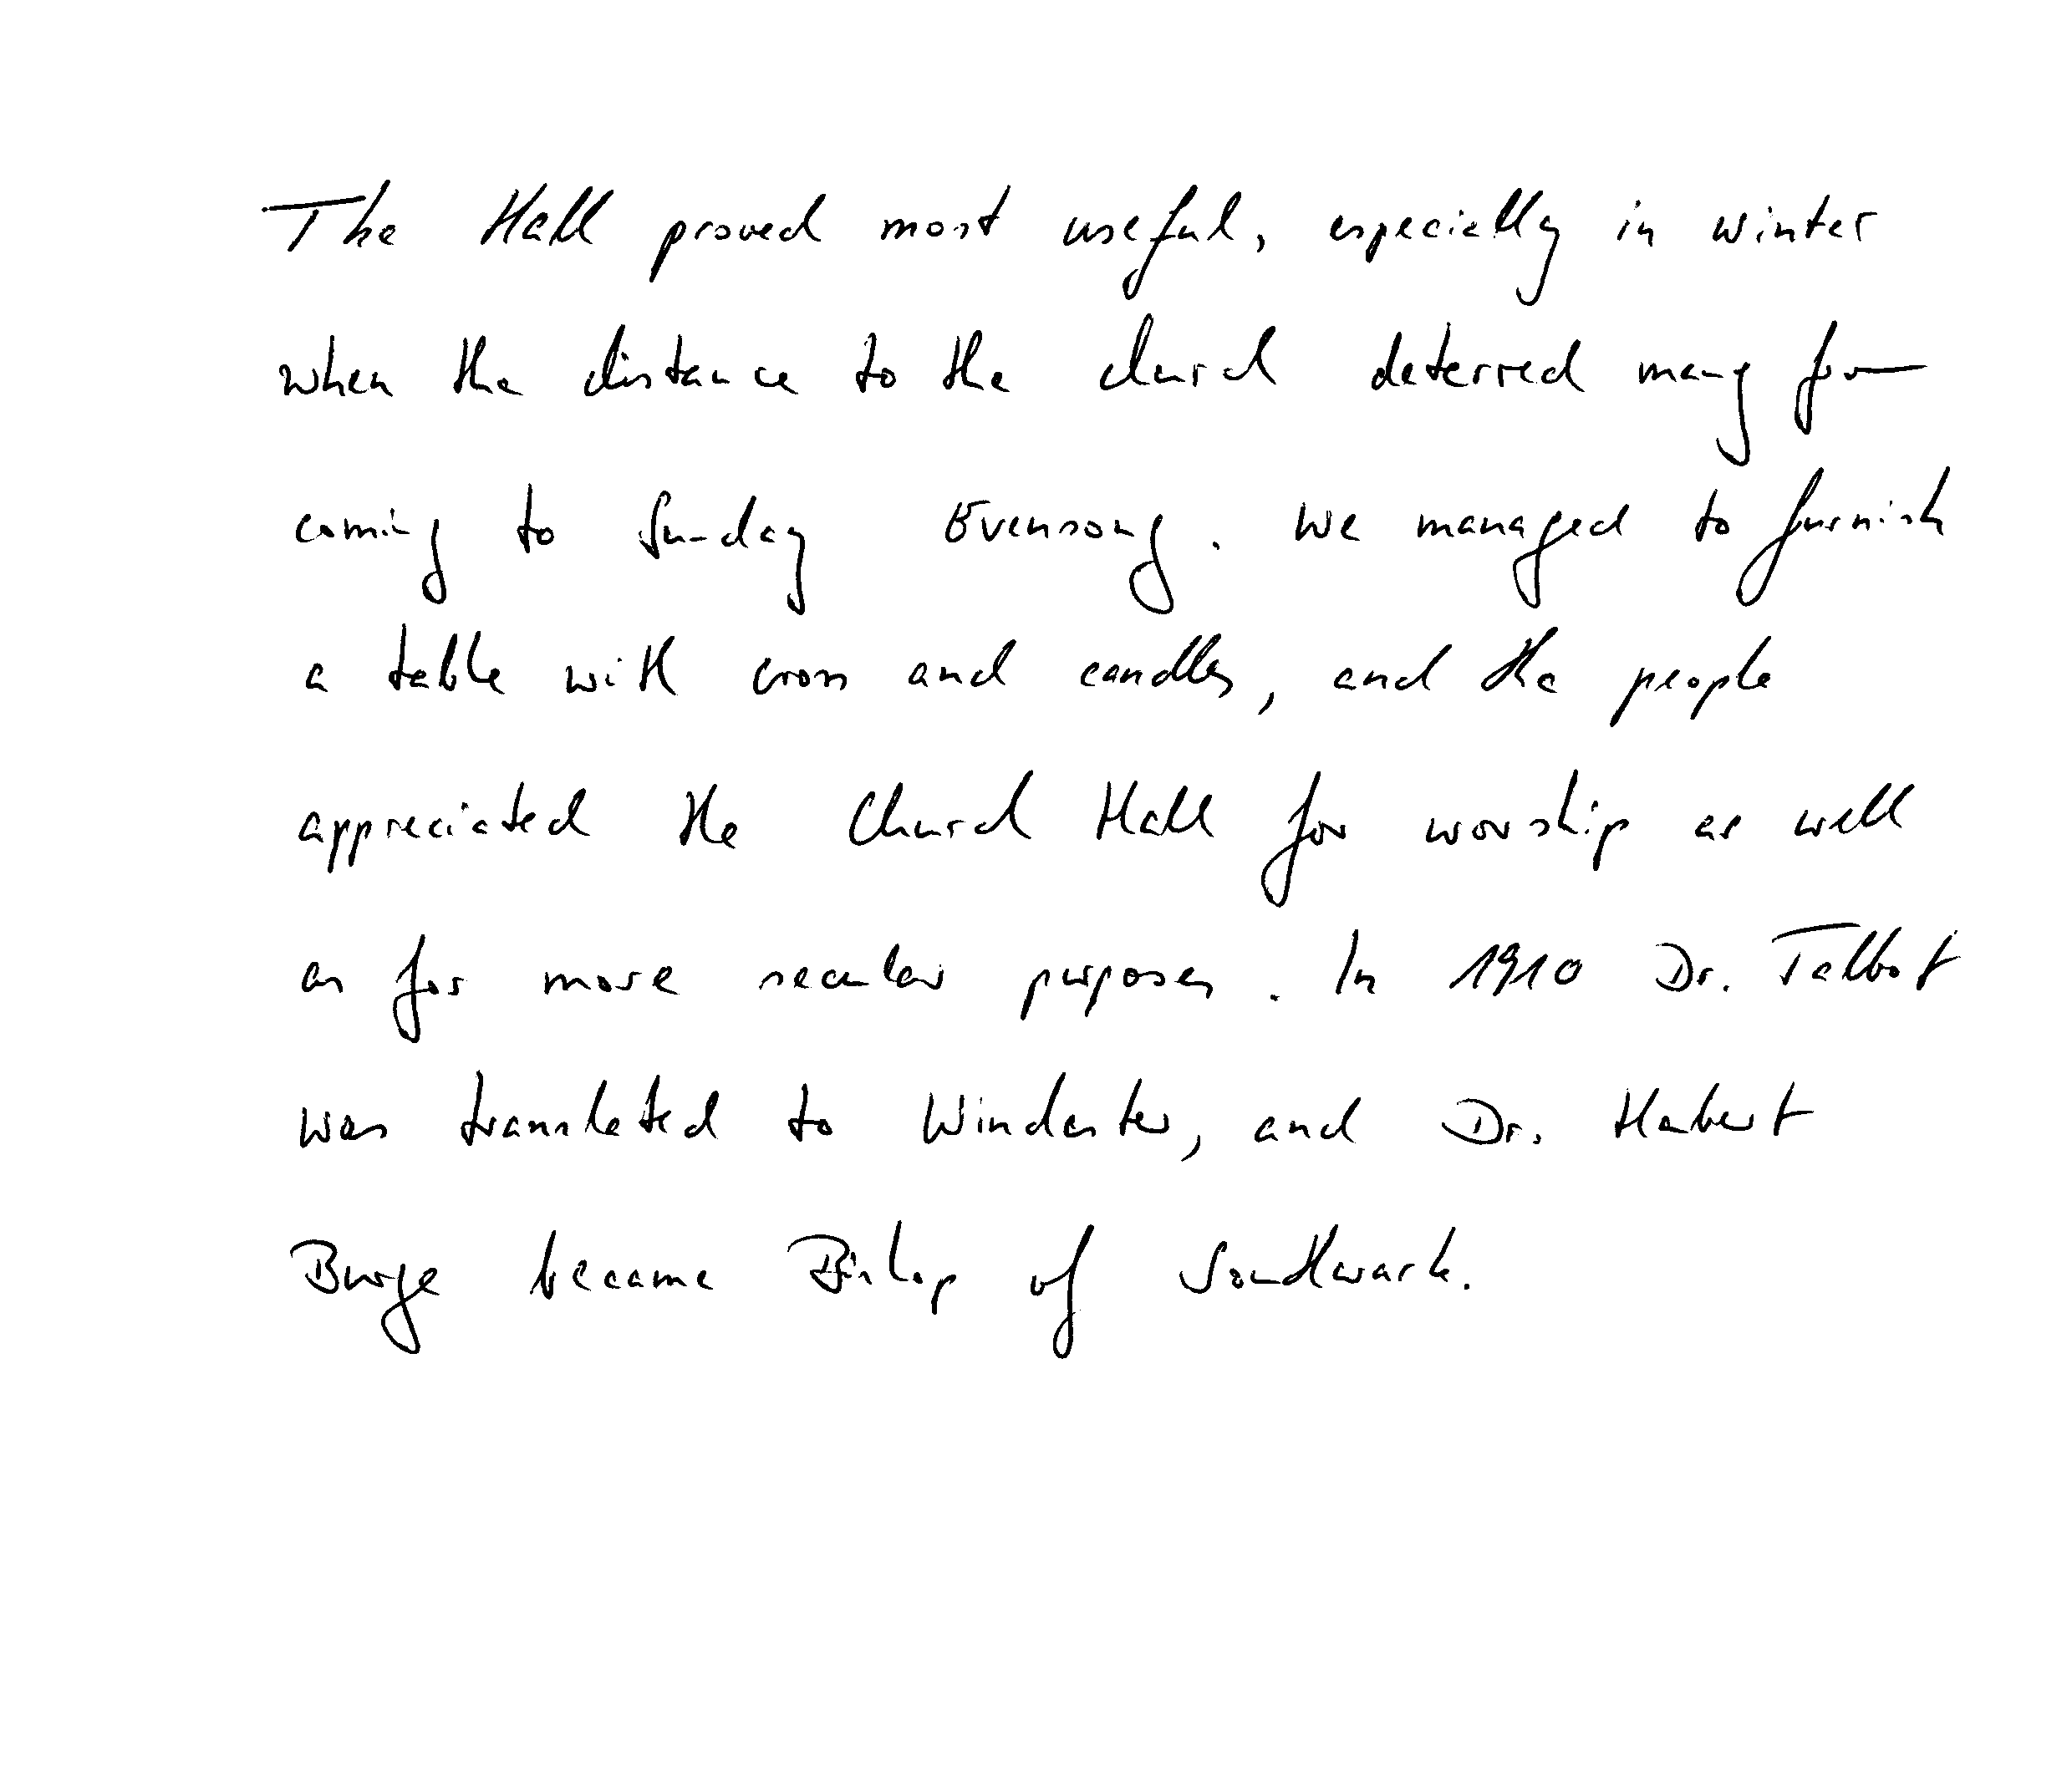 The Hall proved most useful, especially in winter
when the distance to the church deterred many from
coming to Sunday Evensong. We managed to furnish
a table with cross and candles, and the people
appreciated the Church Hall for worship as well
as for more secular purposes. In 1910 Dr. Talbot
was translated to Winchester, and Dr. Hubert
Burge became Bishop of Southwark.